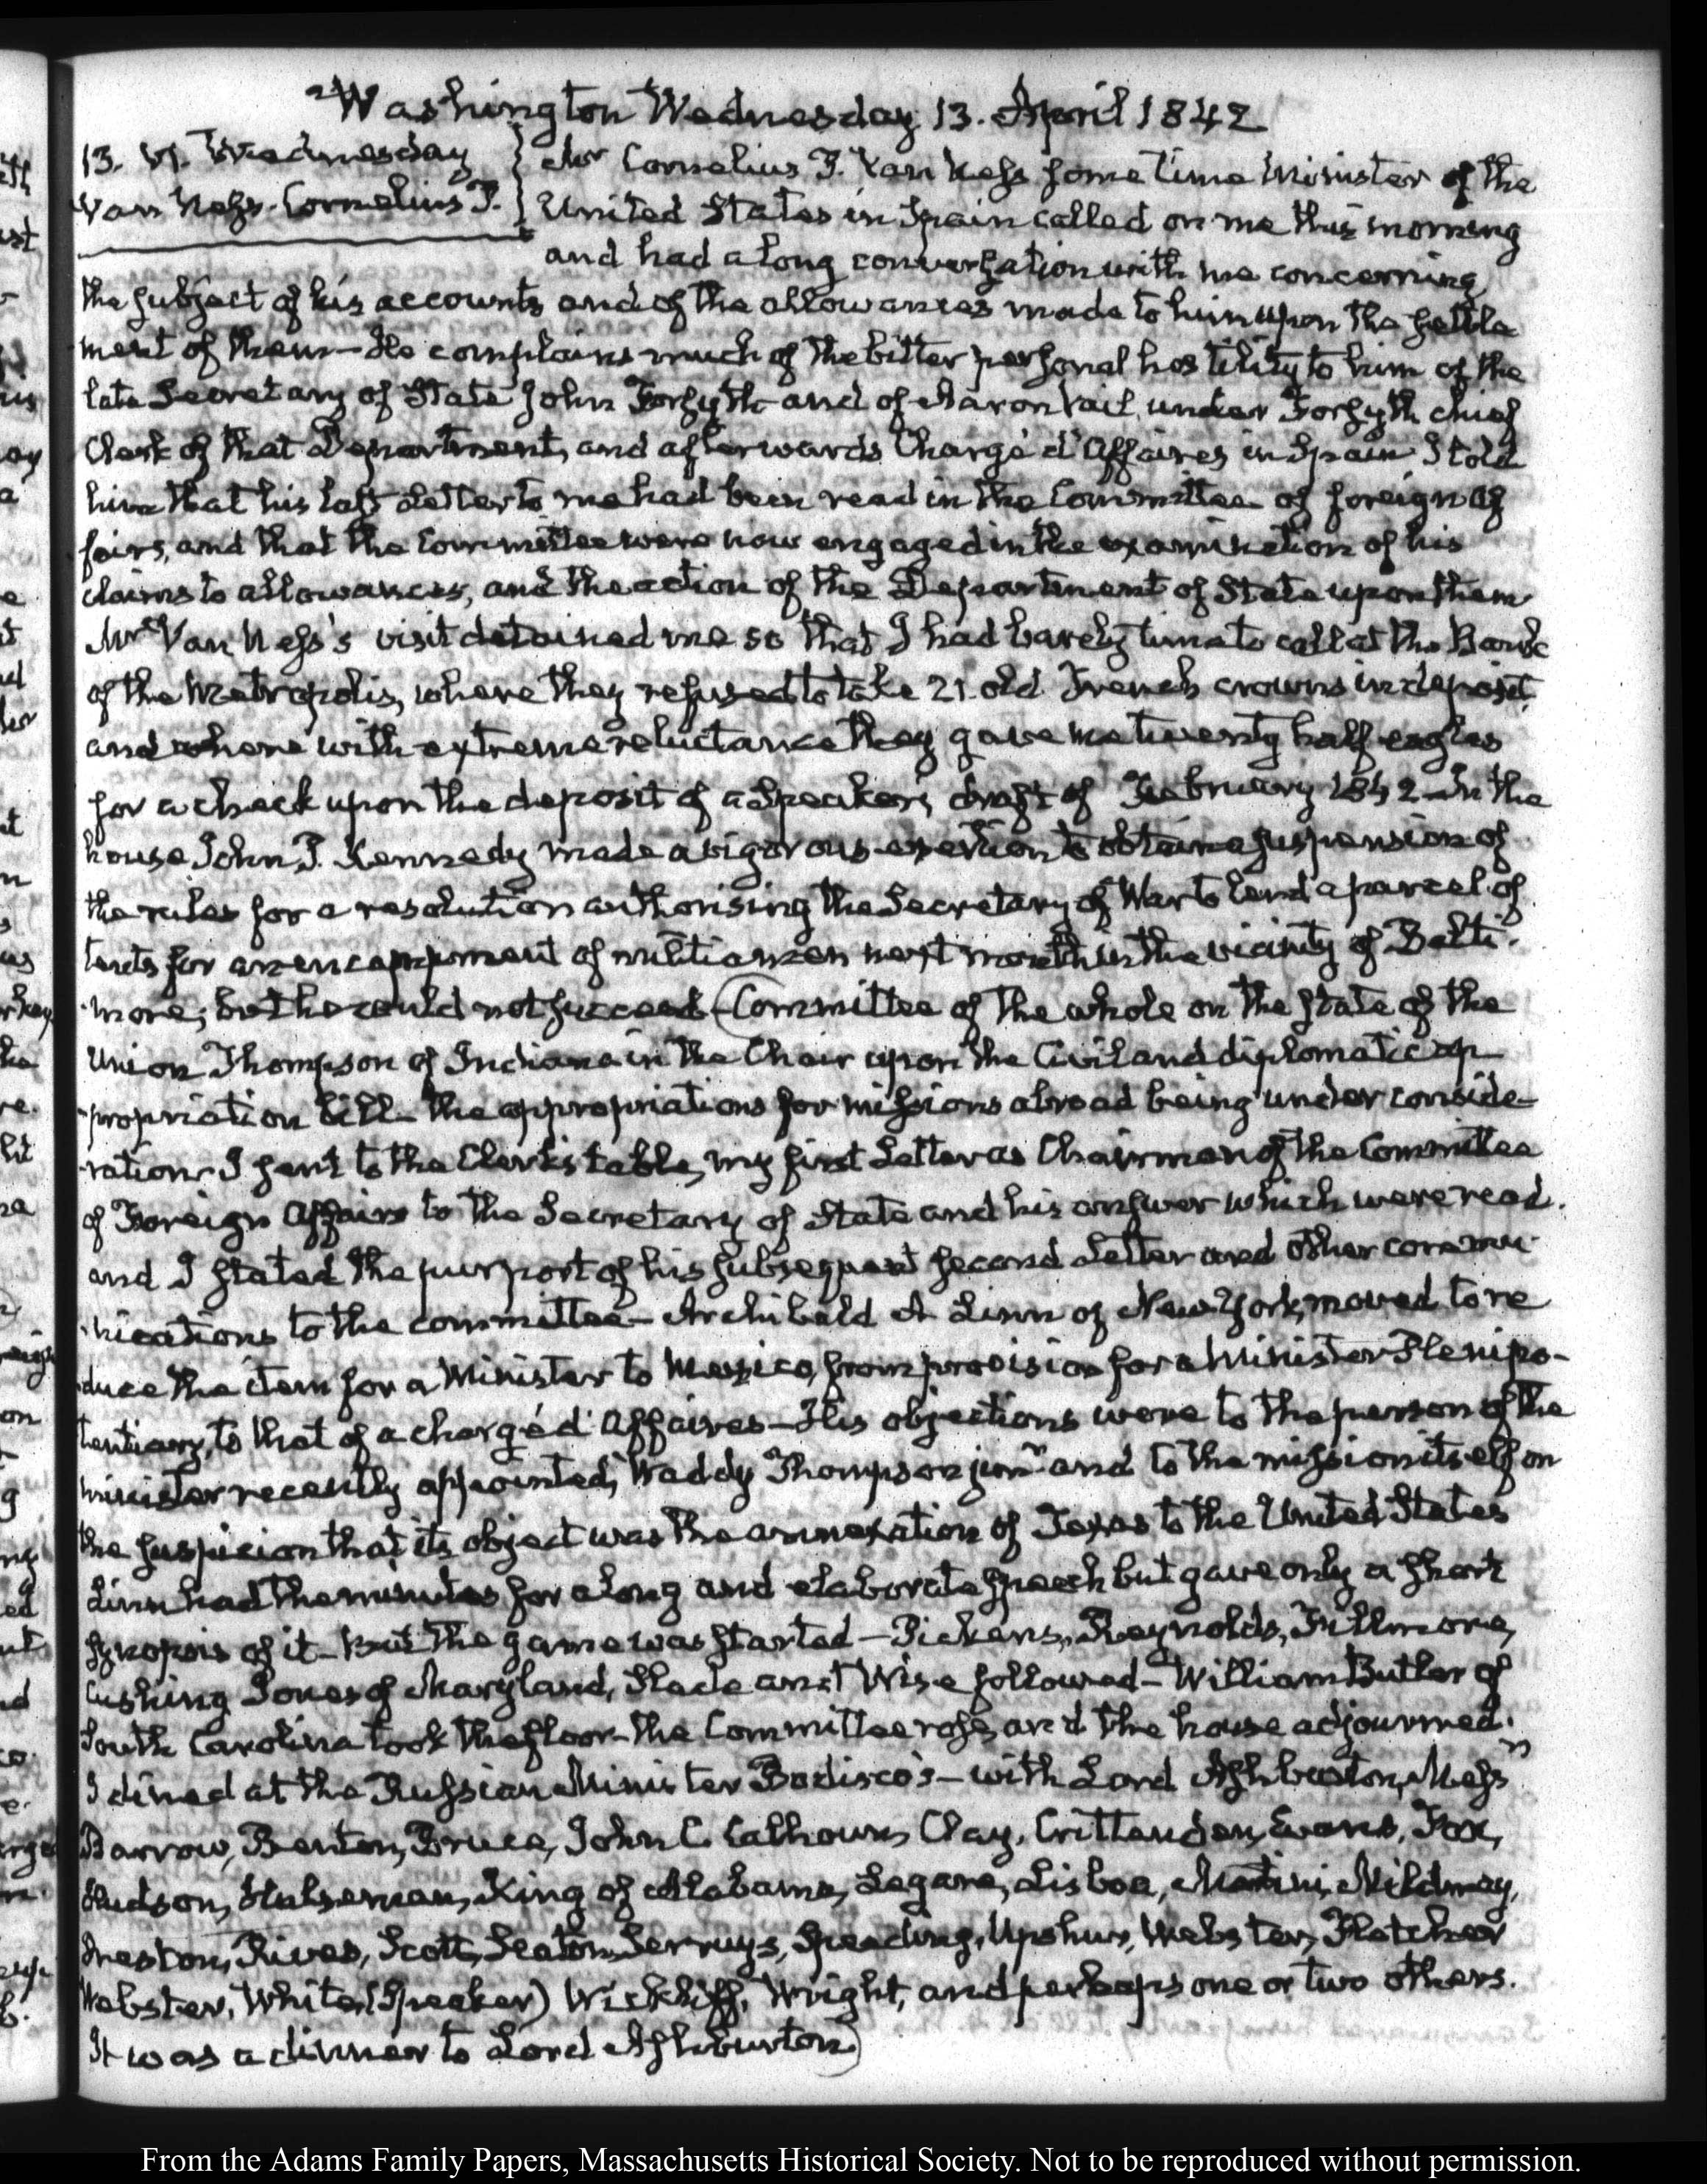 Washington Wednesday 13. April 1842
13. VI. Wednesday
Van Ness. Cornelius P.
Mr Cornelius P. Van Ness some time Minister of the
United States in Spain called on me this morning
and had a long conversation with me concerning
the subject of his accounts and of the allowances made to him upon the settle
ment of them— He complains much of the bitter personal hostility to him of the
late Secretary of State John Forsyth and of Aaron Vail, under Forsyth chief
Clerk of that Department, and afterwards Chargé d'Affaires in Spain. I told
him that his last Letter to me had been read in the Committee of foreign Af
fairs, and that the Committee were now engaged in the examination of his
claims to allowances, and the action of the Department of State upon them
Mr Van Ness's visit detained me so that I had barely time to call at the Bank
of the Metropolis, where they refused to take 21. old French crowns in deposit,
and where with extreme reluctance they gave me twenty half eagles
for a check upon the deposit of a Speaker's draft of February 1842— In the
house John P. Kennedy made a vigorous exertion to obtain a suspension of
the rules for a resolution authorising the Secretary of War to lend a parcel of
tents for an encampment of militiamen next month in the vicinity of Balti-
more; but he could not succeed— (Committee of the whole on the state of the
Union Thompson of Indiana in the Chair upon the Civil and diplomatic ap
propriation bill— The appropriations for missions abroad being under conside-
ration I sent to the Clerk's table, my first Letter as Chairman of the Committee
of Foreign Affairs to the Secretary of State and his answer which were read.
and I stated the purport of his subsequent second Letter and other commu-
nications to the committee— Archibald A Linn of New-York, moved to re
duce the item for a Minister to Mexico, from provision for a Minister Plenipo-
tentiary, to that of a chargé d'Affaires— His objections were to the person of the
minister recently appointed, Waddy Thompson junr and to the mission itself on
the suspicion that its object was the annexation of Texas to the United States
Linn had the minutes for a long and elaborate speech but gave only a short
synopsis of it— But the game was started— Pickens, Reynolds, Fillmore,
Cushing Jones of Maryland, Slade and Wise followed— William Butler of
South Carolina took the floor— the Committee rose, and the house adjourned.
I dined at the Russian Minister Bodisco's— with Lord Ashburton, Messrs
Barrow, Benton, Bruce, John C. Calhoun, Clay, Crittenden, Evans, Fox,
Hudson, Hulseman, King of Alabama, Legare, Lisboa, Martini, Mildmay,
Preston, Rives, Scott, Seaton, Serruys, Stepping, Upshur, Webster, Fletcher
Webster, White, (Speaker) Wickliff, Wright, and perhaps one or two others.
It was a dinner to Lord Ashburton)
From the Adams Family Papers, Massachusetts Historical Society. Not to be reproduced without permission.